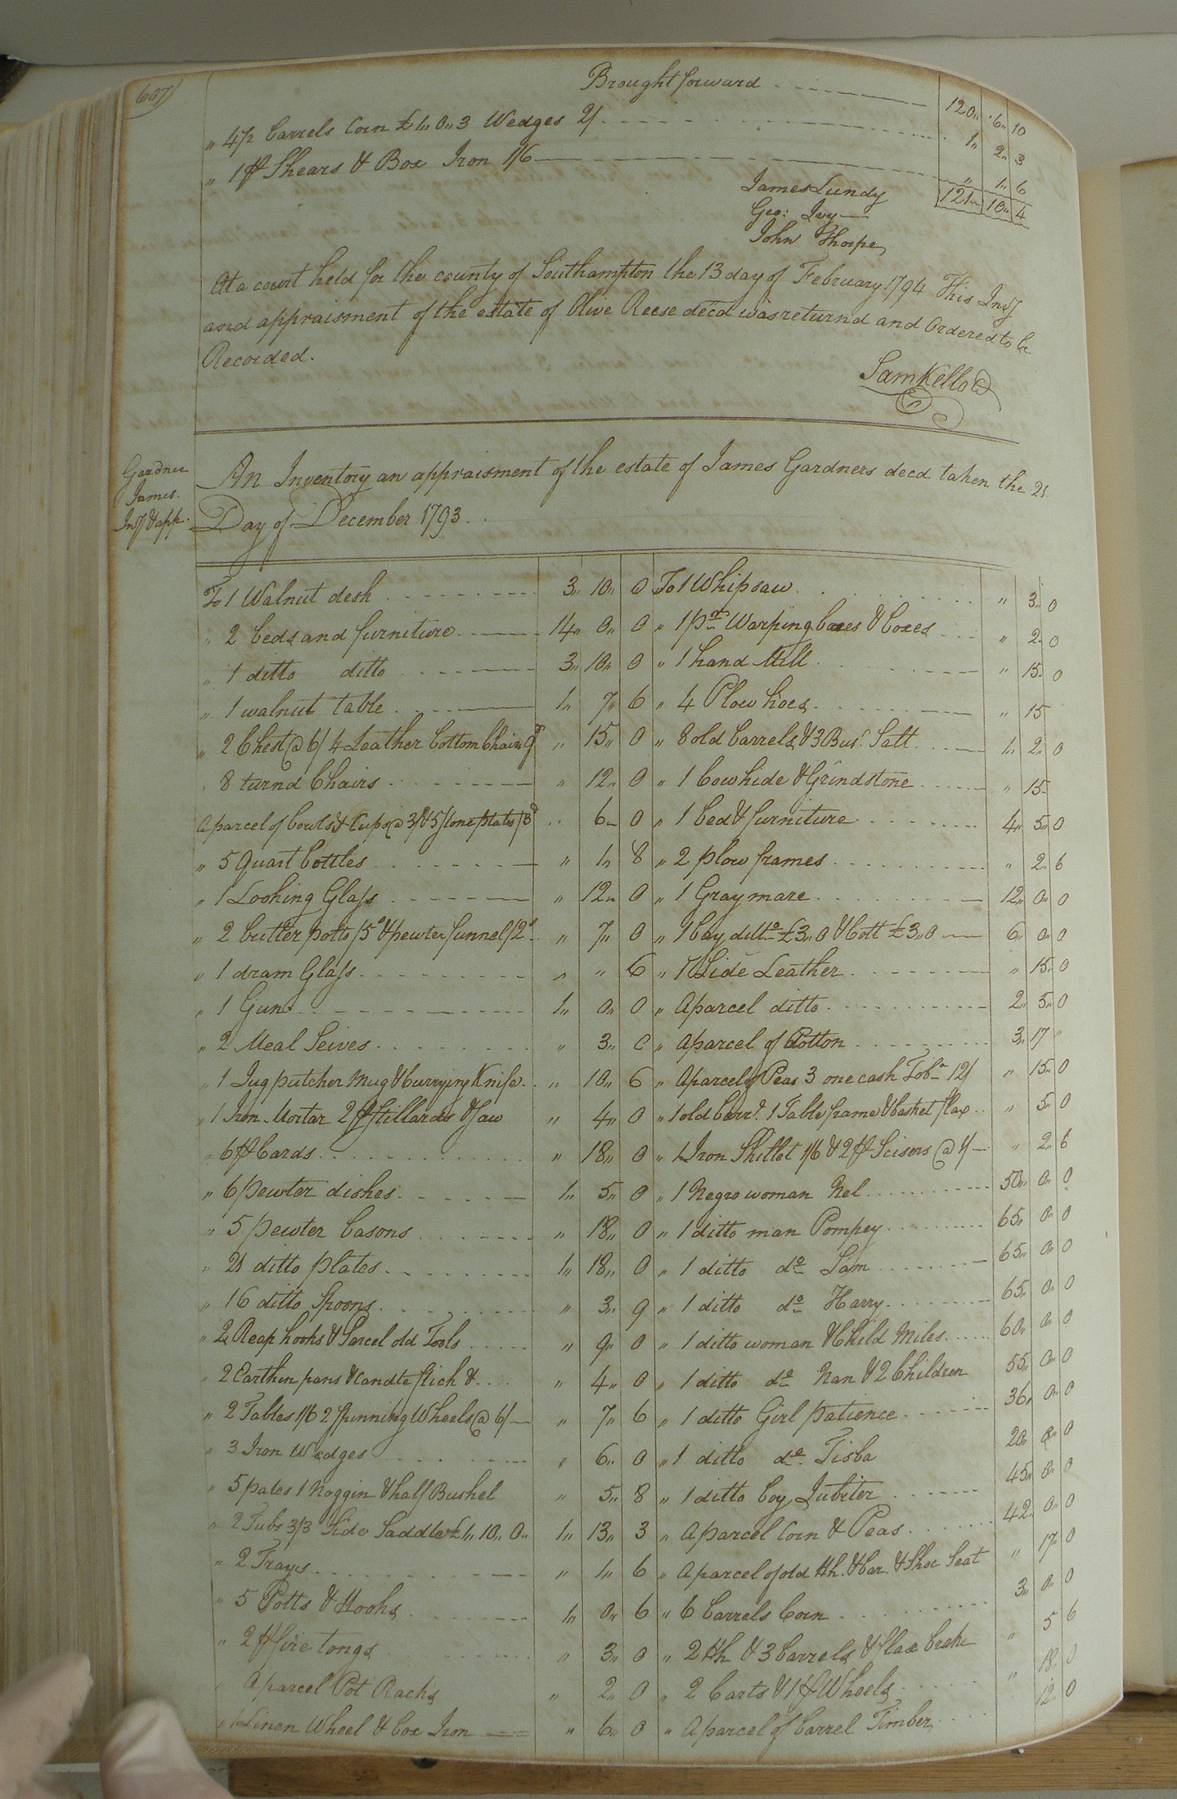 607
Brought forward 120 " 6 " 10
" 4½ barrels Corn £1 " 0 " 3 Wedges 2/ 1 " 2 " 3
" 1 pr Shears & Box Iron 1/6 " 1 " 6
121 " 10 " 4
James Lundy
Geo: Ivy
John Thorpe
At a court held for the county of Southampton the 13 day of February 1794 This Invy
and appraisment of the estate of Olive Reese decd was returnd and Ordered to be
Recorded.
Sam Kello
Gardner
James
Invy & app.
An Inventory an appraisment of the estate of James Gardners decd taken the 21
Day of December 1793
To 1 Walnut desk 3 " 10 " 0
" 2 beds and furniture 14 " 0 " 0
" 1 ditto ditto 3 " 10 " 0
" 1 walnut table 1 " 7 " 6
" 2 Chest @ 6/ 4 Leather bottom Chairs " 15 " 0
8 turnd Chairs " 12 " 0
A parcel of bowls & Cups @ 3/ & 5 Stone plates /8d 6 " 0
" 5 Quart bottles " 1 " 8
" 1 Looking Glass " 12 " 0
" 2 butter potts /5 & pewter funnel /2 " 7 " 0
" 1 dram Glass " " 6
" 1 Gun 1 " 0 " 0
" 2 Meal Seives " 3 " 0
" 1 Jug putcher Mug & Currying Knife " 10 " 6
" 1 Iron Mortar 2 pr Stillards & Saw " 4 " 0
" 6 pr Cards " 18 " 0
" 6 pewter dishes 1 " 5 " 0
" 5 pewter basons " 18 " 0
" 21 ditto plates 1 " 18 " 0
" 16 ditto Spoons " 3 " 9
" 2 Reap hooks & Parcel old Tools " 9 " 0
" 2 Earthen pans & Candle stick & " 4 " 0
" 2 Tables 1/6 2 Spinning Wheels @ 6/ " 7 " 6
" 3 Iron Wedges " 6 " 0
" 5 pales 1 Noggin & half Bushel " 5 " 8
" 2 Tubs 3/3 Side Saddle £1 " 10 " 0 1 " 13 " 3
" 2 Trays " 1 " 6
" 5 Potts & Hooks 1 " 0 " 6
" 2 pr fire tongs " 3 " 0
A parcel Pot Racks " 2 " 0
" 1 Linen Wheel & box Iron " 6 " 0
To 1 Whipsaw " 3 " 0
" 1 pr Warping baxes & boxes " 2 " 0
" 1 hand Mill " 15 " 0
" 4 Plow hoes " 15
" 8 old barrels & 3 Bus. Salt 1 " 2 " 0
" 1 Cowhide & Grindstone " 15
" 1 bed & furniture 4 " 5 " 0
" 2 plow frames " 2 " 6
" 1 Gray mare 12 " 0 " 0
" 1 bay ditto £3 " 0 & Colt £3 " 0 6 " 0 " 0
" 7 Side Leather " 15 " 0
" A parcel ditto 2 " 5 " 0
" A parcel of Cotton 3 " 17 "
" A parcel of Peas 3 one cask Tob. 12/ " 15 " 0
" 1 old barrl. 1 Table frame & basket flax " 5 " 0
" 1 Iron Skillet 1/6 & 2 pr Scisors @ 1/ " 2 " 6
" 1 Negro woman Nel 50 " 0 " 0
" 1 ditto man Pompey 65 " 0 " 0
" 1 ditto do Sam 65 " 0 " 0
" 1 ditto do Harry 65 " 0 " 0
" 1 ditto woman & Child Miles 60 " 0 " 0
" 1 ditto do Nan & 2 Children 55 " 0 " 0
" 1 ditto Girl Patience 36 " 0 " 0
" 1 ditto do Tisba 20 " 0 " 0
" 1 ditto boy Jubiter 45 " 0 " 0
" A parcel Corn & Peas 42 " 0 " 0
" A parcel of old Hh. & bar & Shoe Seat " 17 " 0
" 6 barrels Corn 3 " 0 " 0
" 2 Hh & 3 barrels & flax brake " 5 6
" 2 Carts & 1 pr Wheels " 18 " 0
" A parcel of barrel Timber 12 " 0